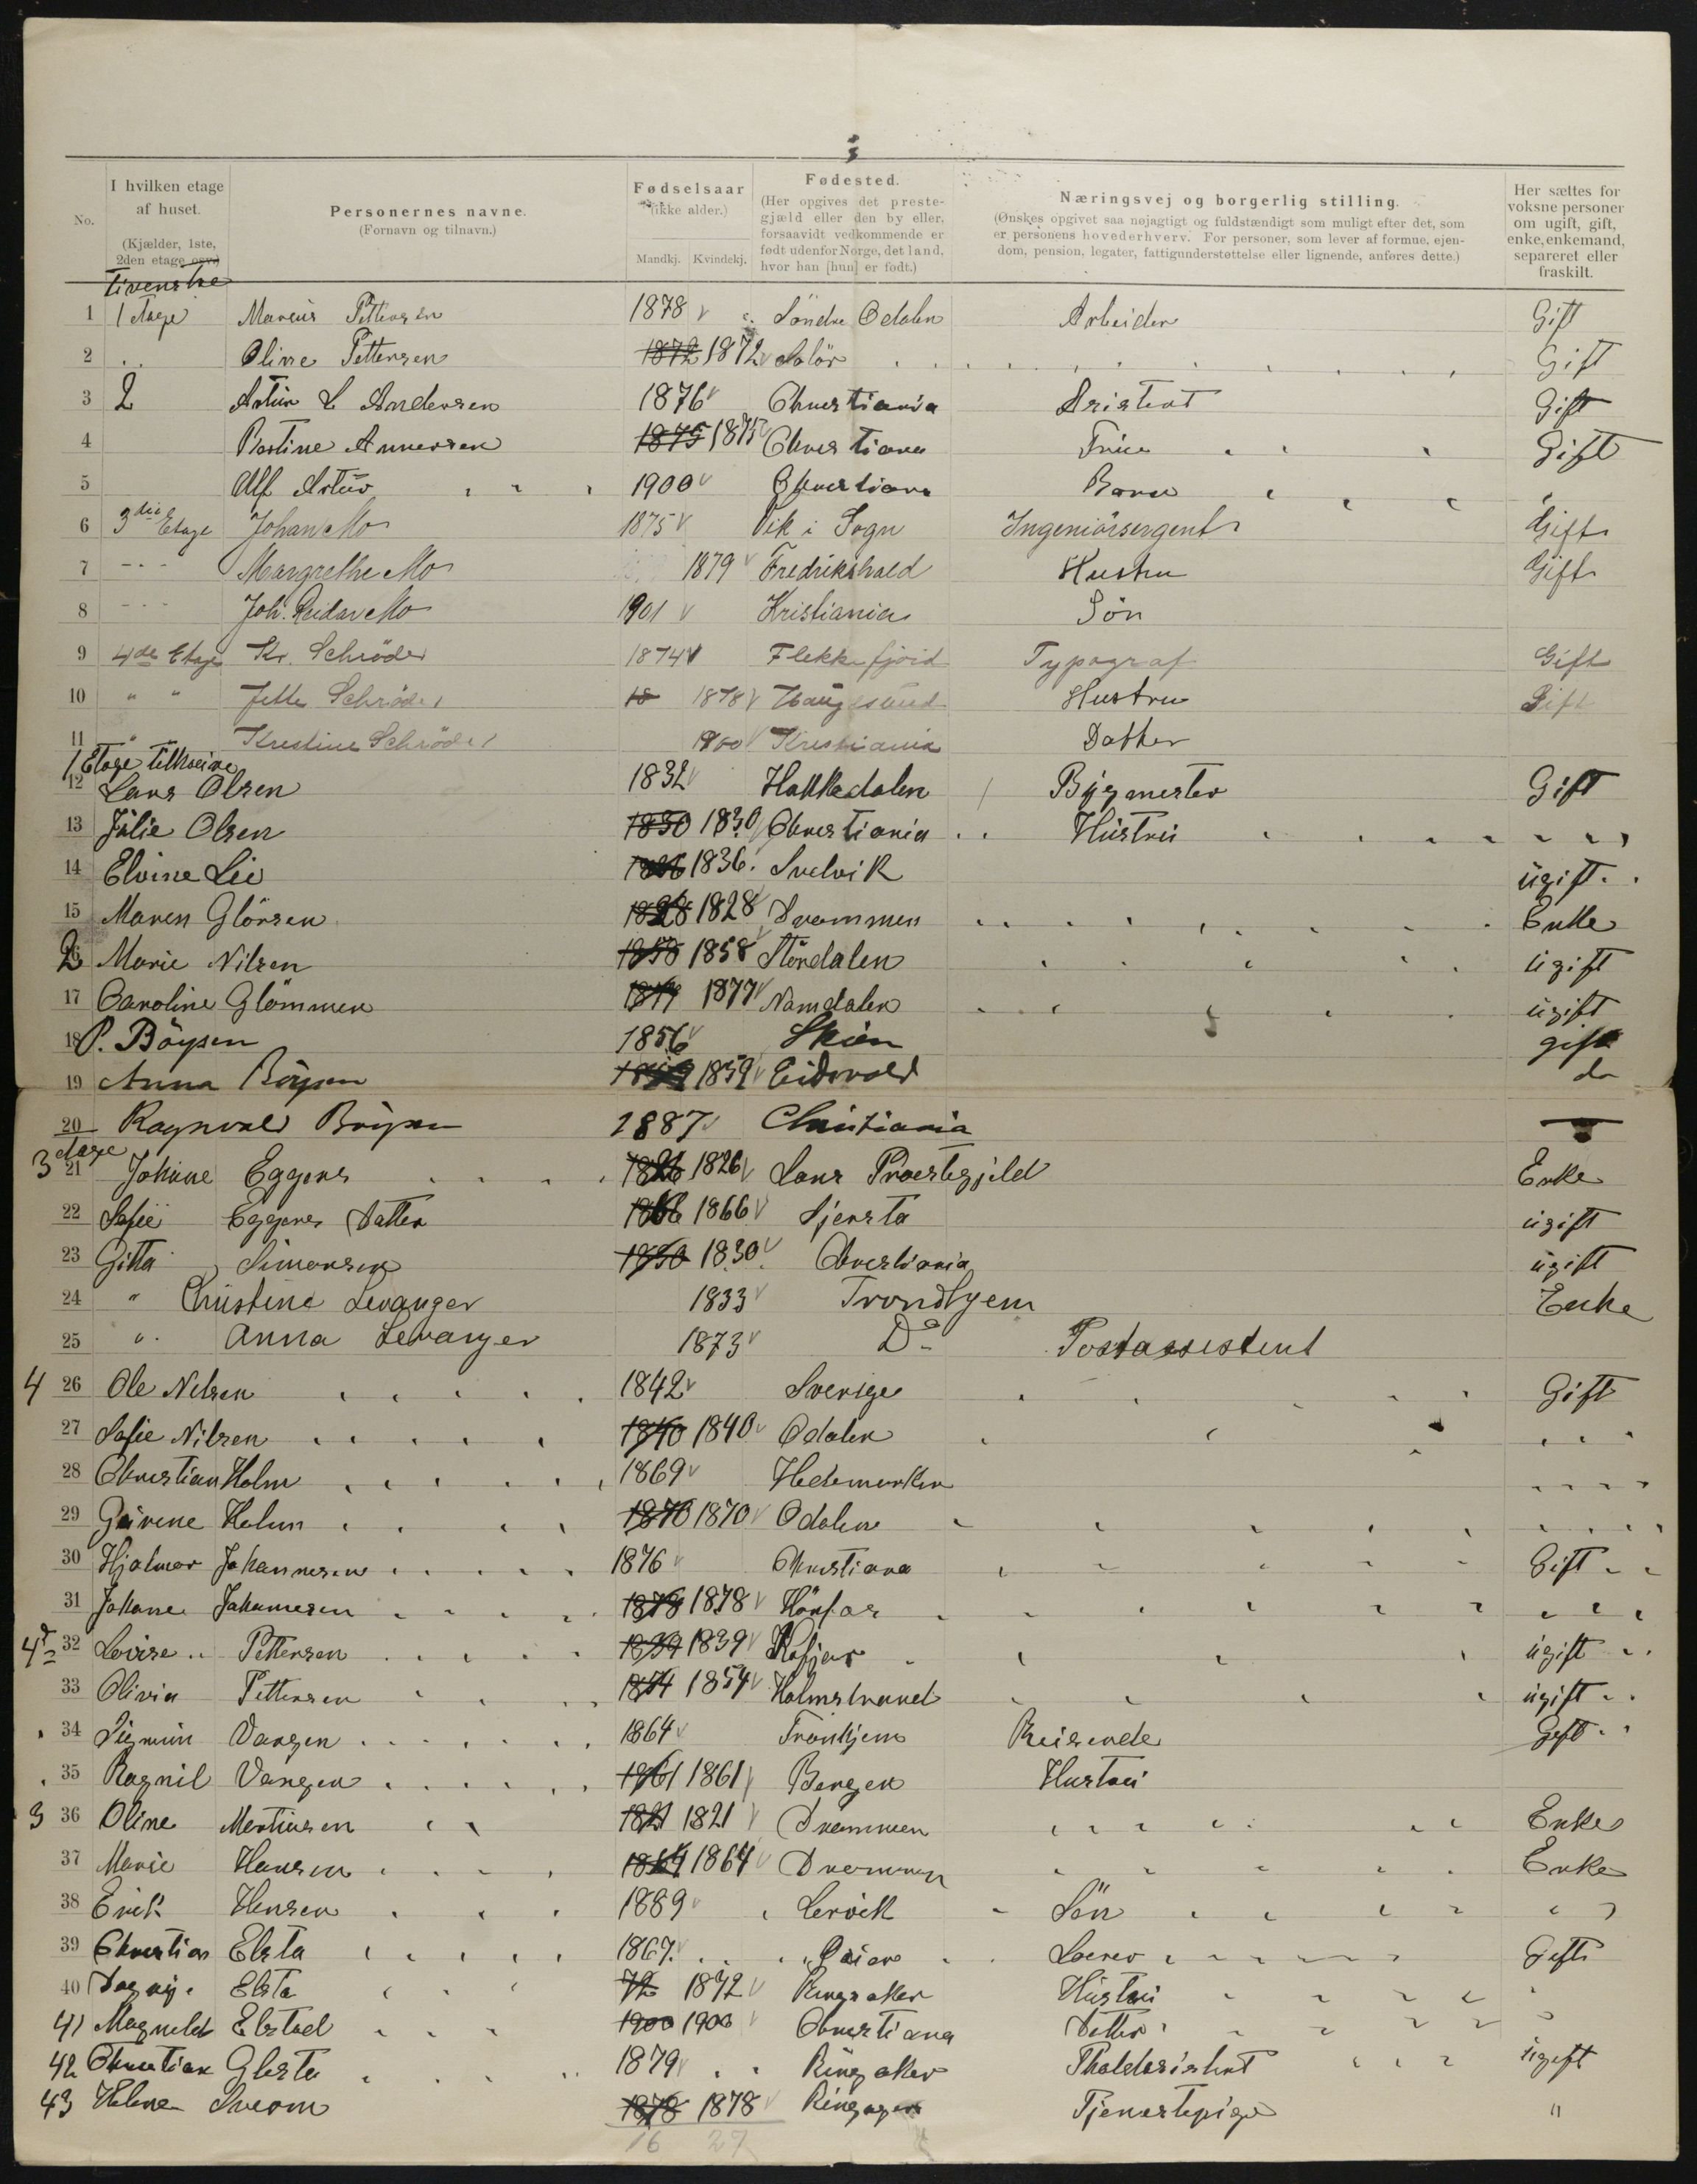 No.
I hvilken etage af huset. (Kjælder, 1ste, 2den etage osv.)
Personernes navne. (Fornavn og tilnavn.)
Fødselsaar (ikke alder.) Mandkj. Kvindekj.
Fødested. (Her opgives det prestegjæld eller den by eller, forsaavidt vedkommende er født udenfor Norge, det land, hvor han [hun] er født.)
Næringsvej og borgerlig stilling. (Ønskes opgivet saa nøjagtigt og fuldstændigt som muligt efter det, som er personens hovederhverv. For personer, som lever af formue, ejendom, pension, legater, fattigunderstøttelse eller lignende, anføres dette.)
Her sættes for voksne personer om ugift, gift, enke, enkemand, separeret eller fraskilt.
1 1 Etage Marius Pettersen 1878 Söndre Odalen Arbeider Gift
2 Oline Pettersen 1872 1872 Solör Gift
3 2 Artur L Andersen 1876 Christiania Asistent Gift
4 1875 1875 Christiania Frue Gift
5 Alf Artur 1900 Christiania Barn
6 3die Etage Johan Mo 1875 Vik i Sogn Ingeniörsergent Gift
7 Margrethe Mo 1879 Fredrikshald Hustru Gift
8 Joh. Reidar Mo 1901 Kristiania Sön
9 4de Etage Kr. Schröder 1874 Flekkefjord Typograf Gift
10 " " Jette Schröder 18 1878 Haugesund Hustru Gift
11 " " Kristine Schröder 1900 Kristiania Datter
1 Etage tilhøire
12 Lars Olsen 1832 Hakkedalen Bygmester Gift
13 Julie Olsen 1830 1830 Christiania Hustru
14 Elvine Lie 1836 1836. Svelvik ugift
15 Maren Glörsen 1828 1828 Drammen Enke
2 16 Marie Nilsen 1858 1858 Stördalen ugift
17 Caroline Glömmen 1877 1877 Namdalen ugift
18 P. Böysen 1856 Skien gift
19 Anna Böysen 1859 1859 Eidsvold do
20 Ragnvald Böysen 1887 Christiania —
3 etage
21 Johane Eggers 1826 1826 Lans Præstegjeld Enke
22 Sofie Eggers Datter 1866 1866 ugift
23 Gitta Simonsen 1830 1830 Christiania ugift
24 " Christine Levanger 1833 Trondhjem Enke
25 " Anna Levanger 1873 Do Postassistent
4 26 Ole Nelsen 1842 Sverige Gift
27 Sofie Nilsen 1840 1840 Odalen
28 Christian Holm 1869 Hedemarken
29 Holm 1870 1870 Odalen
30 Hjalmar Johannesen 1876 Christiana Gift
31 Johane Johannesen 1878 1878
4d 32 Lovise Pettersen 1839 1839 ugift
33 Olivia Pettersen 1854 1854 Holmstrand ugift
34 Vangen 1864 Trontjem Reisende Gift
35 Ragnil Vangen 1861 1861 Bergen Hustru
3 36 Oline Mortinsen 1821 1821 Drammen Enke
37 Marie Hansen 1864 1864 Drammen Enke
38 Erik Hensen 1889 Lervik Sön
39 Christian Elsta 1867 Gift
40 Dagny Elsta 72 1872 Ringsaker Hustru
41 Magnild Elstad 1900 1900 Christiana Datter
42 Christian Glesta 1879 Ringsaker ugift
43 Helene Sveom 1878 1878 Tjenestepige "
16 27